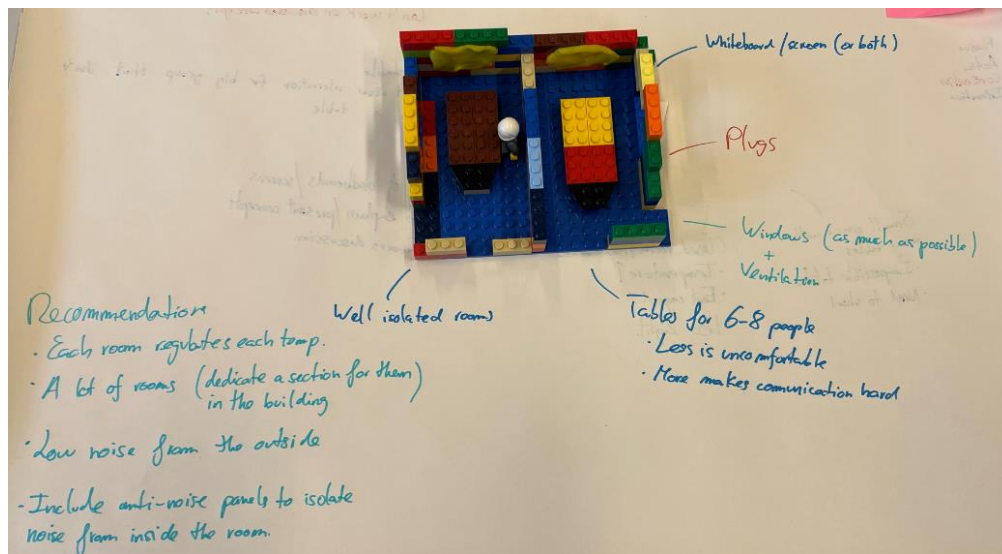 Whiteboard/screen (or both)
Plugs
Windows (as much as possible)
+
Ventilation
Well isolated rooms
Tables for 6-8 people
· Less is uncomfortable
· More makes communication hard
Recommendations
· Each room regulates each temp.
· A lot of rooms (dedicate a section for them)
in the building
· Low noise from the outside
- Include anti-noise panels to isolate
noise from inside the room.